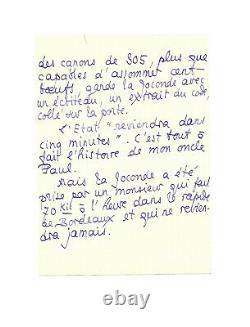 des canons de 305, plus que
capables d'assommer cent
bœufs, garde la Joconde avec
un écriteau, un extrait du code,
collé sur la porte.
"L'Etat reviendra dans
cinq minutes". C'est tout à
fait l'histoire de mon oncle
Paul.
Mais la Joconde a été
prise par un monsieur qui fait
70 kil à l'heure dans le rapide
de Bordeaux et qui ne revien-
dra jamais.
ebay